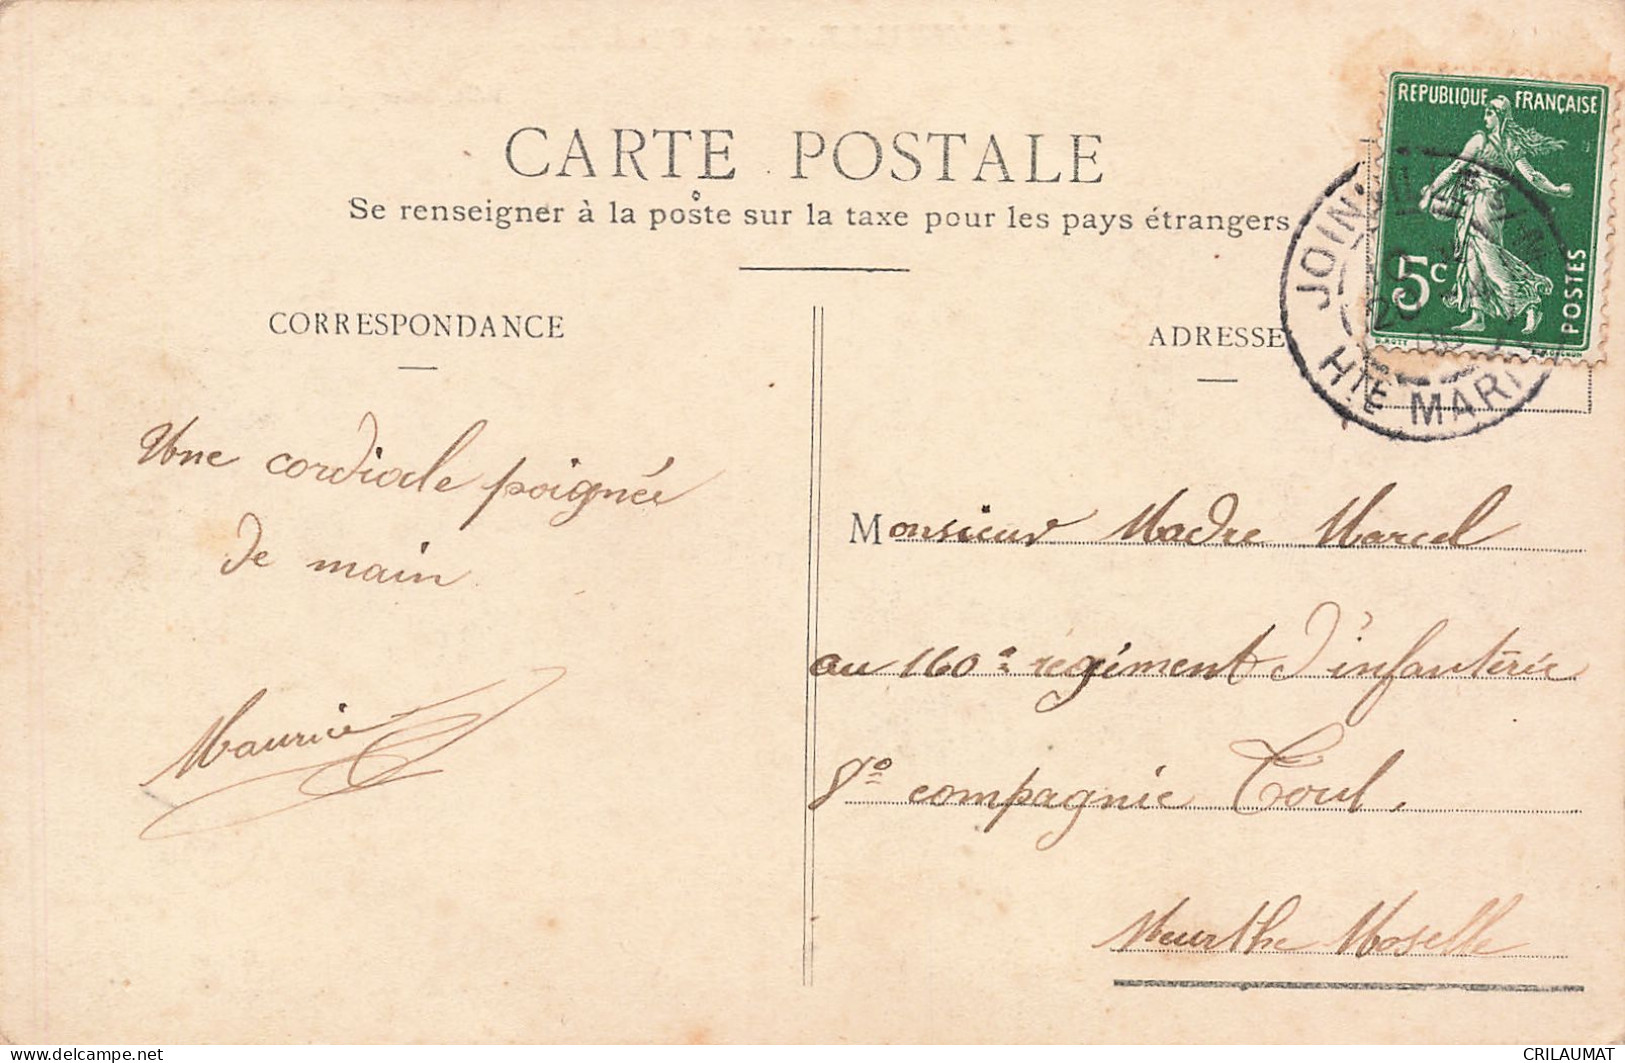 CARTE POSTALE
Se renseigner à la poste sur la taxe pour les pays étrangers
REPUBLIQUE FRANÇAISE
5c
POSTES
JOINVILLE
HTE MAR
CORRESPONDANCE
ADRESSE
Une cordiale poignée
de main
Maurice
Monsieur Madre Marcel
au 160e régiment d'infanterie
8e compagnie Toul.
Meurthe Moselle
CRILAUMAT
www.delcampe.net